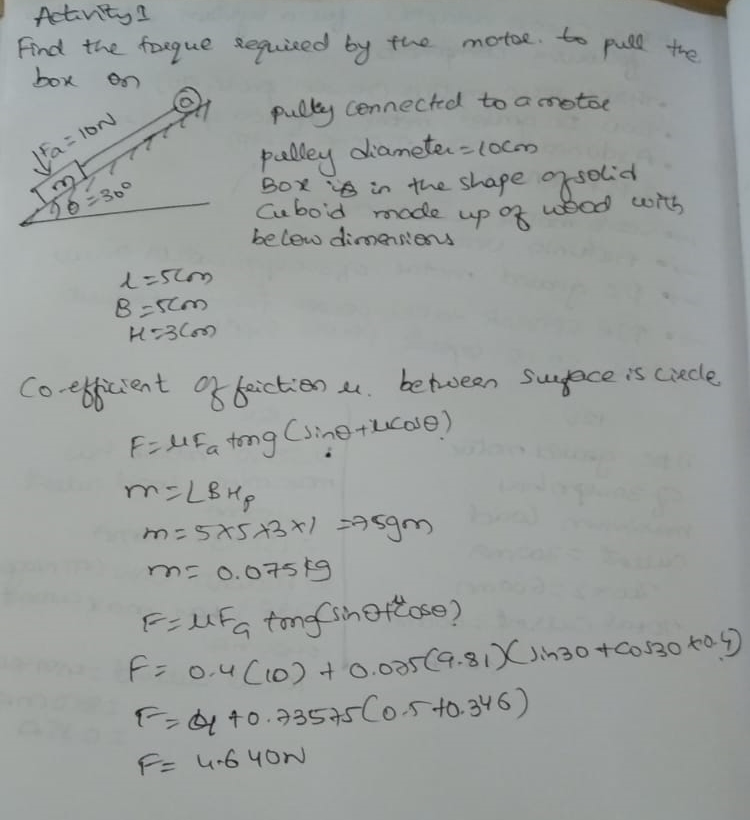 Activity 1
Find the torque required by the motor. to pull the
box on
Fa=10N
m
θ=30°
pulley connected to a motor
pulley diameter=10cm
Box is in the shape of solid
Cuboid made up of wood with
below dimensions
L=5cm
B=5cm
H=3cm
Co-efficient of friction u. between surface is circle
F=μFa+mg(sinθ+μcosθ)
m=LBHρ
m=5×5×3×1=75gm
m=0.075kg
F=μFa+mg(sinθ+μcosθ)
F=0.4(10)+0.075(9.81)(sin30+cos30×0.4)
F=4+0.73575(0.5+0.346)
F=4.640N